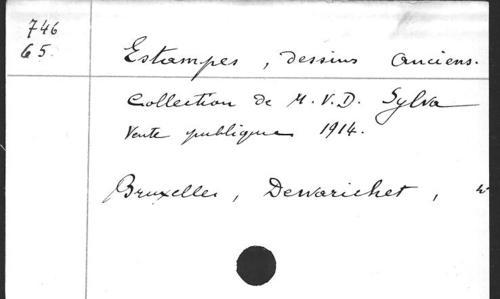 746
65.
Estampes, dessins anciens.
Collection de M. V. D. Sylva
Vente publique 1914.
Bruxelles, Dewarichet,